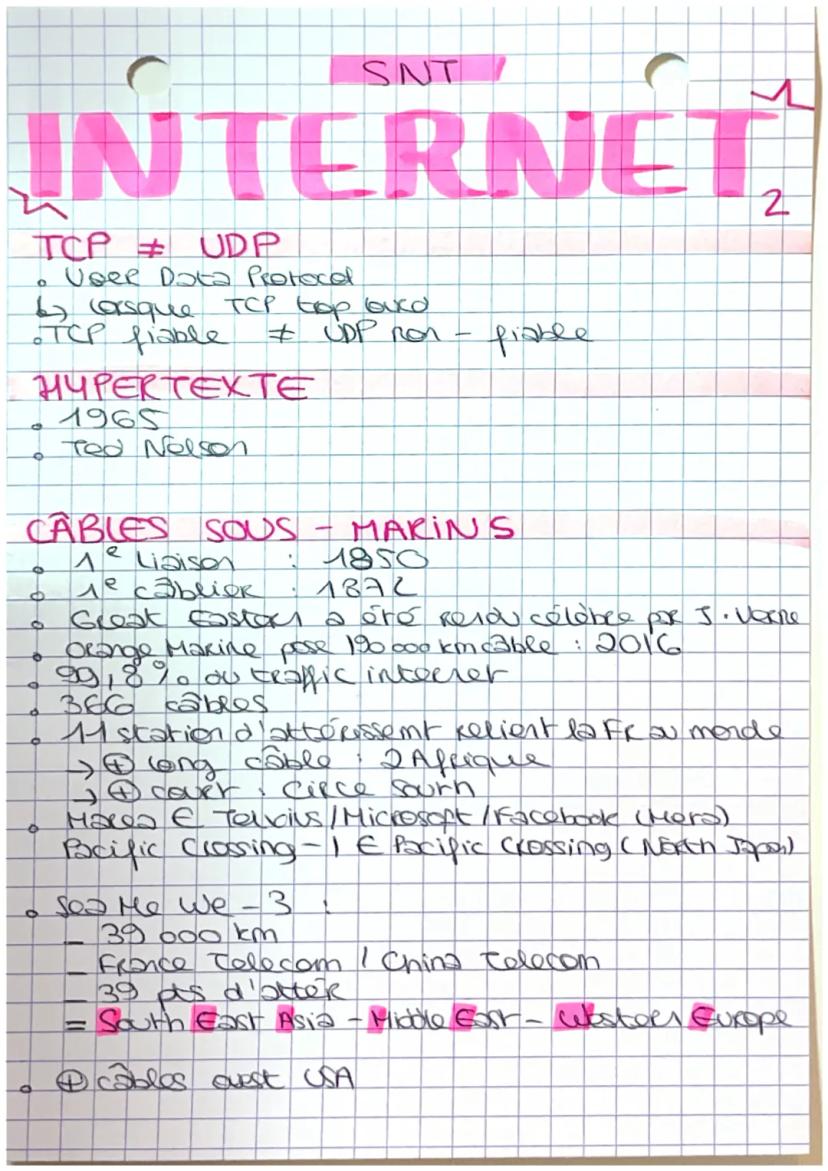 SNT
INTERNET
2
TCP ≠ UDP
• User Data Protocol
↳ lorsque TCP trop lourd
• TCP fiable ≠ UDP non - fiable
HYPERTEXTE
• 1965
• Ted Nelson
CÂBLES SOUS - MARINS
• 1e liaison : 1850
• 1e câblier : 1872
• Great Eastern a été rendu célèbre par J. Verne
• Orange Marine pose 190 000 km câble : 2016
• 99,8% du traffic internet
• 366 câbles
• 11 station d'attérissemt relient la FR au monde
→ ⊕ long câble : 2Afrique
→ ⊕ court : Circe South
• Marea ∈ Telxius/Microsoft/Facebook (Meta)
Pacific Crossing-1 ∈ Pacific Crossing (North Japan)
• Sea Me We-3 :
- 39 000 km
- France Telecom / China Telecom
- 39 pts d'attér
= South East Asia - Middle East - Western Europe
• ⊕ câbles ouest USA